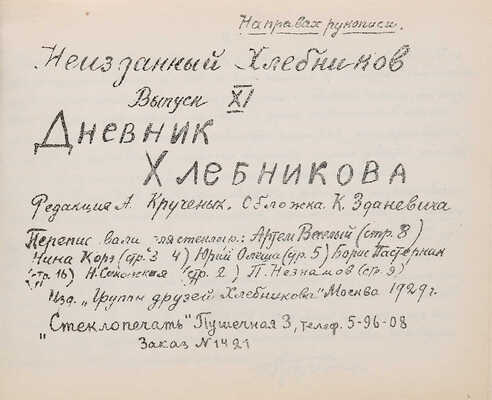 На правах рукописи.
Неизданный Хлебников
Выпуск XI
Дневник
Хлебникова
Редакция А. Крученых. Обложка К. Зданевича
Перепис вали для стеклогр.: Артем Веселый (стр. 8)
Нина Корт (стр. 3 4) Юрий Олеша (стр. 5) Борис Пастернак
(стр. 16) Н. Соколовская (стр. 2) П. Незнамов (стр. 9)
Изд. „Группы друзей Хлебникова" Москва 1929 г.
„Стеклопечать" Пушечная 3, телеф. 5-96-08
Заказ N 1421